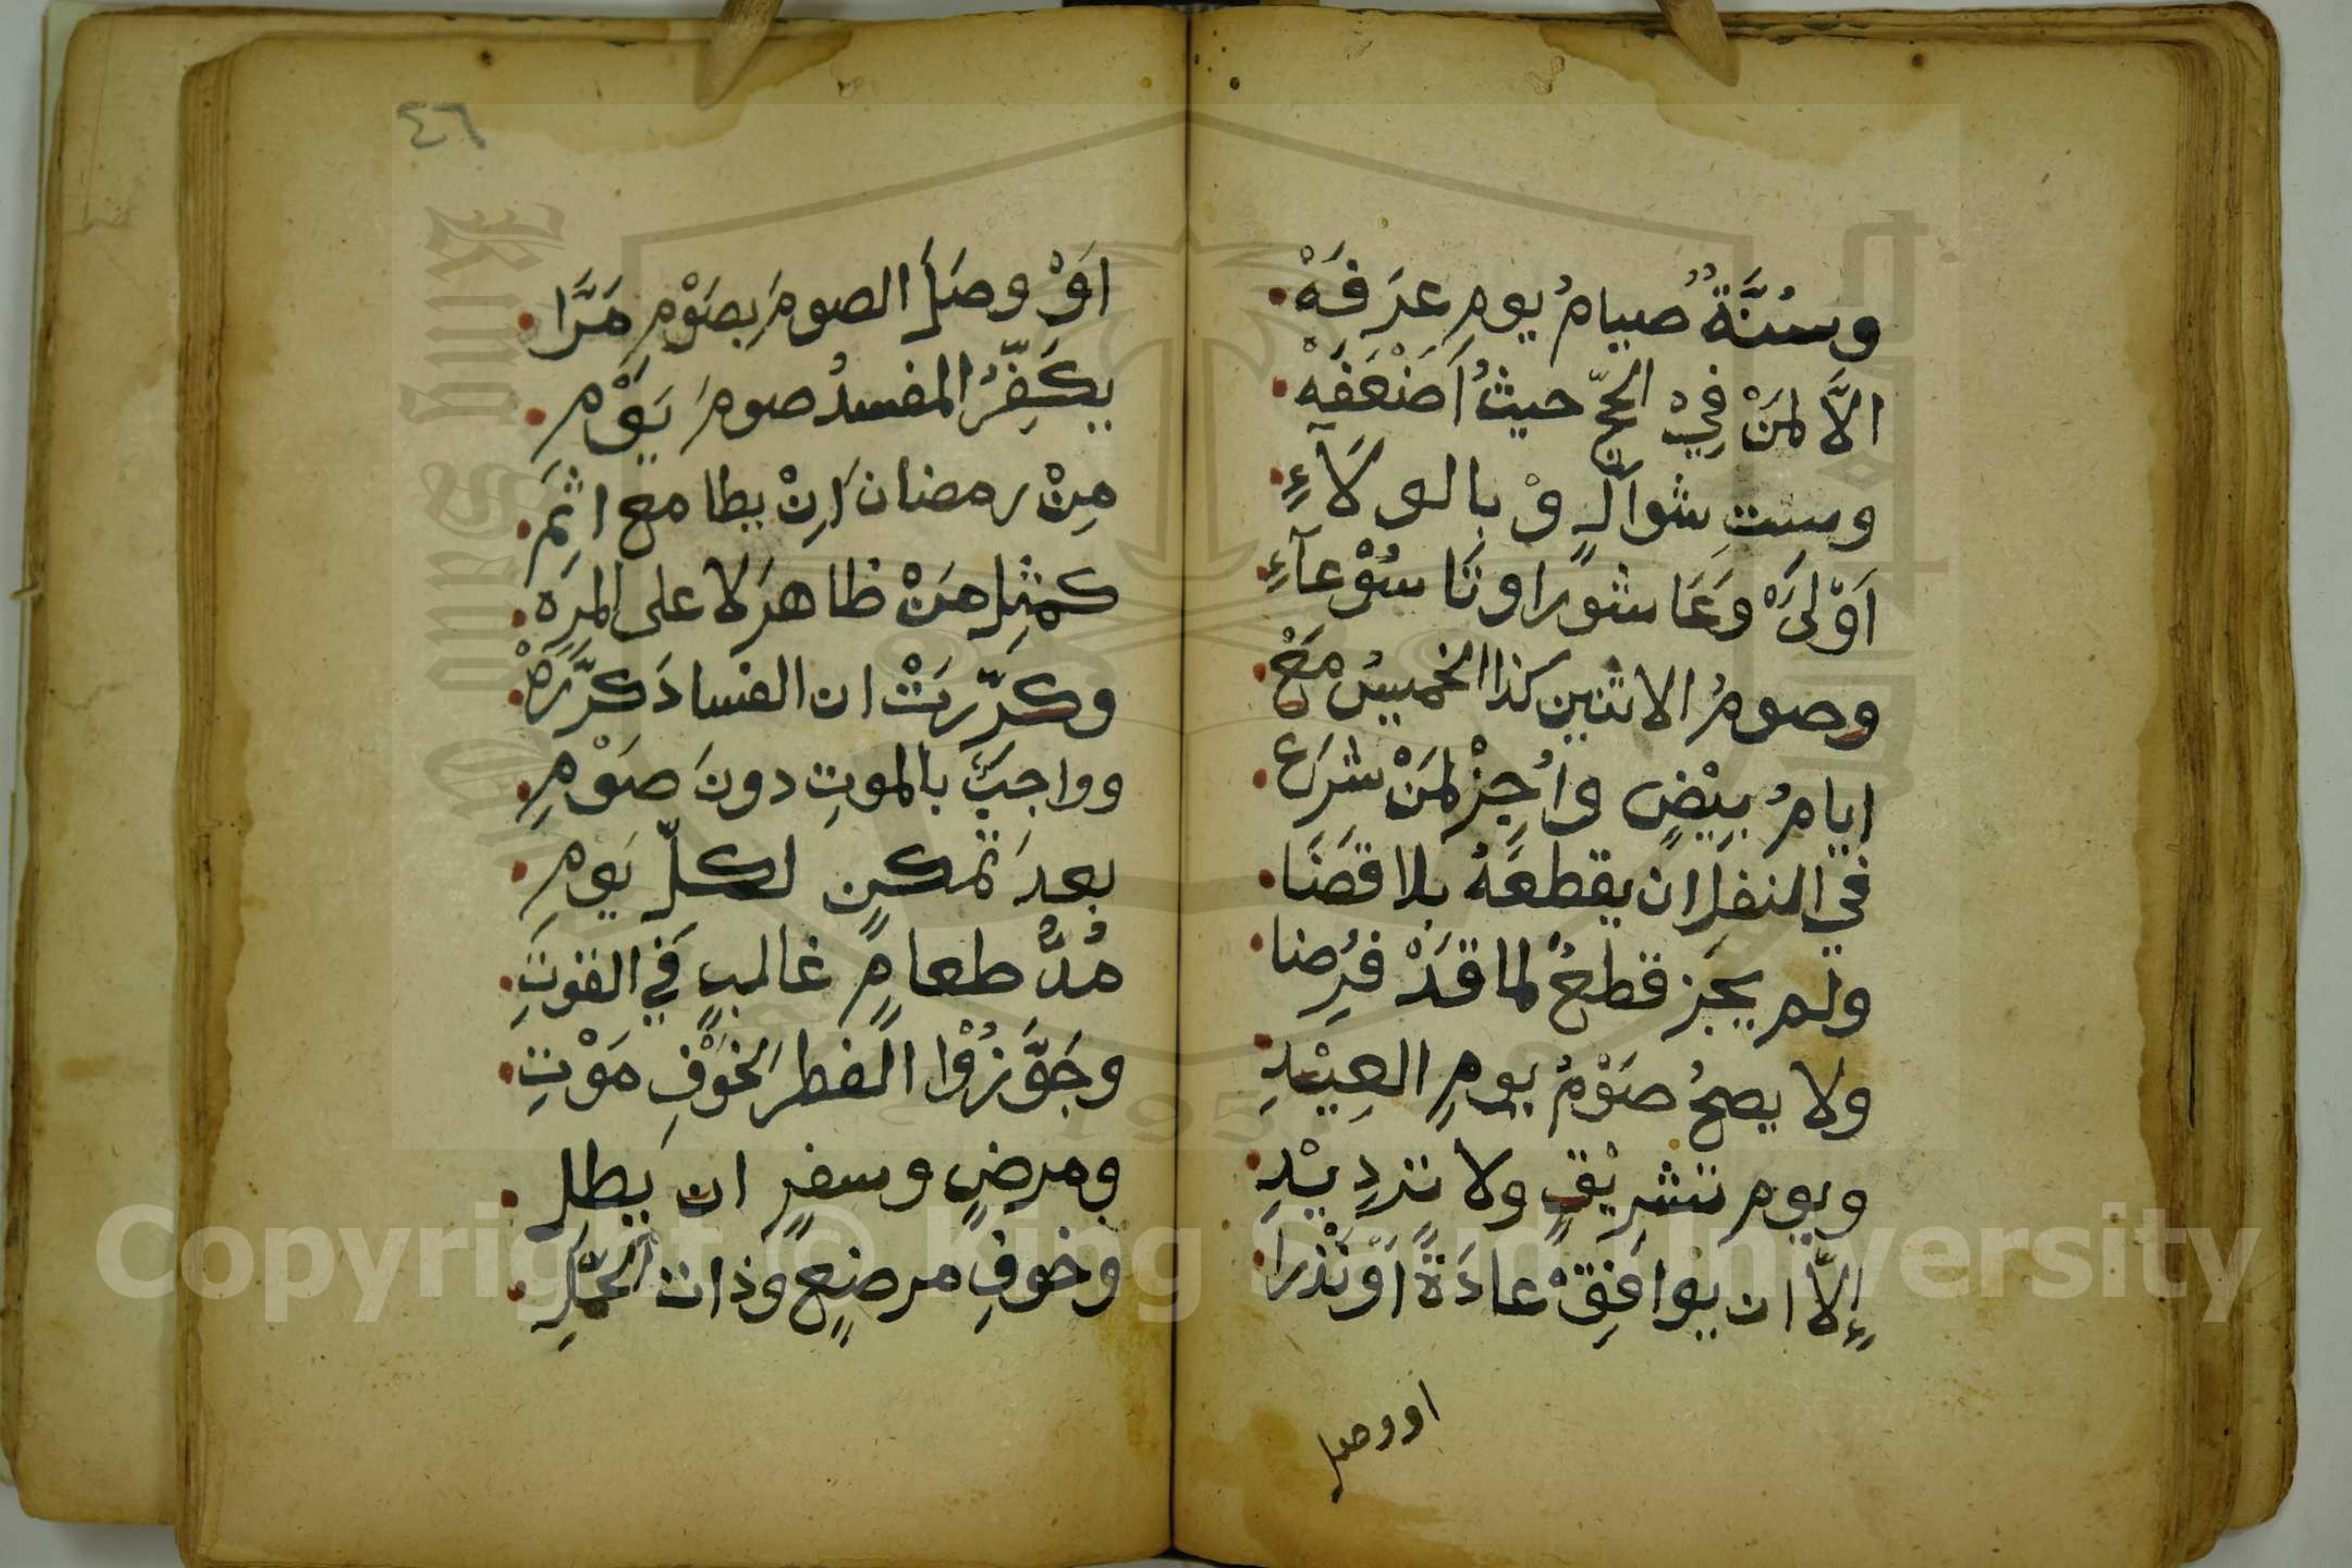 وسُنَّةٌ صيامُ يومِ عرَفَهْ
الاَّ لمَنْ فِيْ الحجّ حيثُ أضْعَفَهْ
وستِ شوالٍ وْ بالولَآءِ
اَوْلىَْ وَعَاشورا وتَاسُوْعآءِ
وصومُ الاثنين كذا الخميسُ مَعْ
ايامُ بيْضٍ واُجِزْ لمَنْ شرَع
في النفلِ ان يقطعَهُ بلا قضَا
ولم يجز قطعٌ لما قدْ فرُضا
ولا يصحُ صوْمُ يومِ العِيْدِ
ويوم تشريْقٍ ولا ترديْدِ
إلاّ ان يوافِقْ عادَةً اَوْ نَذْرَا
او وصل
٤٦
اَوْ وصَلَ الصومَ بصَوْمٍ مَرَّا
يكَفِّرُ المفسدُ صومَ يَوْمِ
مِنْ رمضانَ اِنْ يطا مع اثِمَ
كمثِلِ مَنْ ظاهرَ لا على المرَه
وكرّرَتْ ان الفسادَ كرَّرَهْ
وواجبٌ بالموتِ دونَ صَوْمِ
بعدَ تمكنٍ لكلّ يَومِ
مُدُّ طعامٍ غالبٍ في القوتِ
وجَوَّزُوْا الفطرَ لخَوْفِ مَوْتِ
ومرضٍ وسفرٍ ان يَطلِ
وخوفِ مرضعٍ وذات الحَمْلِ
Copyright © King Saud University
King Saud University
1957